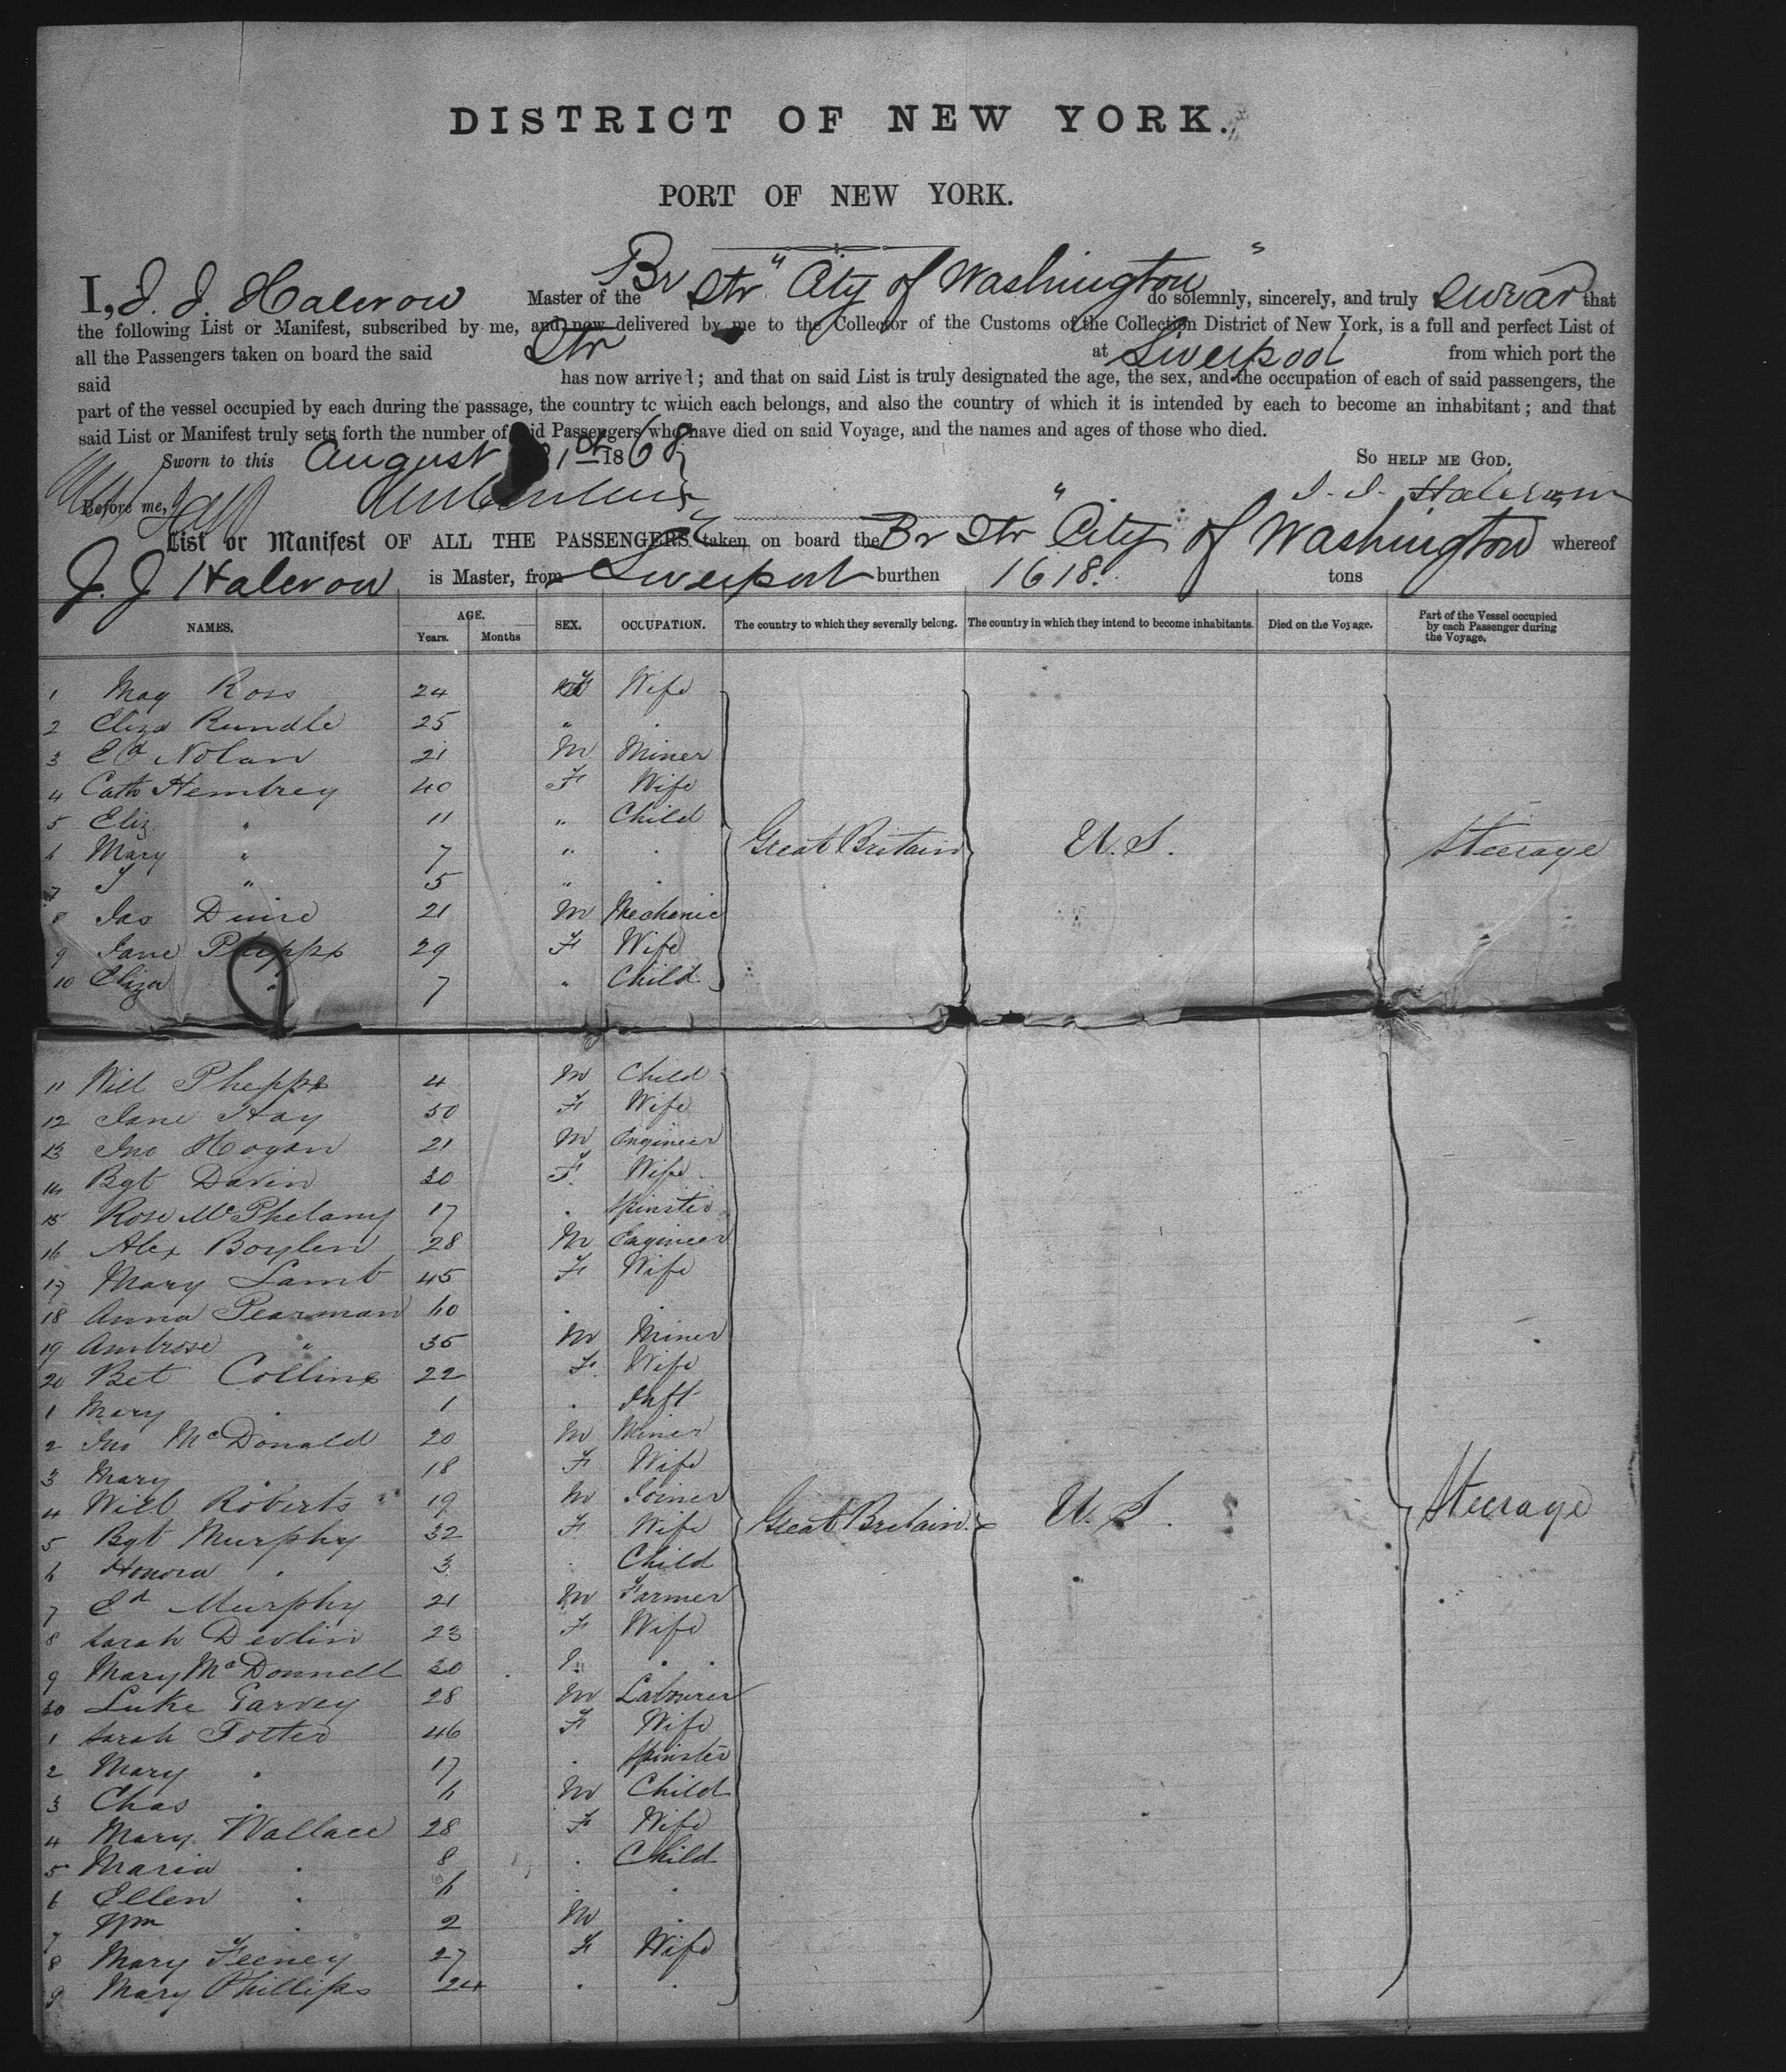 DISTRICT OF NEW YORK.
PORT OF NEW YORK.
I, J. J. Halcrow Master of the Br Str "City of Washington" do solemnly, sincerely, and truly swear that
the following List or Manifest, subscribed by me, and now delivered by me to the Collector of the Customs of the Collection District of New York, is a full and perfect List of
all the Passengers taken on board the said Str at Liverpool from which port the
said has now arrived; and that on said List is truly designated the age, the sex, and the occupation of each of said passengers, the
part of the vessel occupied by each during the passage, the country to which each belongs, and also the country of which it is intended by each to become an inhabitant; and that
said List or Manifest truly sets forth the number of said Passengers who have died on said Voyage, and the names and ages of those who died.
Sworn to this August 1st 1868 So help me God.
Before me, J. J. Halcrow
List or Manifest OF ALL THE PASSENGERS taken on board the Br Str "City of Washington whereof
J. J. Halcrow is Master, from Liverpool burthen 1618. tons
NAMES. AGE. Years. Months SEX. OCCUPATION. The country to which they severally belong. The country in which they intend to become inhabitants. Died on the Voyage. Part of the Vessel occupied by each Passenger during the Voyage.
1 May Ross 24 F Wife
2 Eliza Rundle 25 " .
3 Ed Nolan 21 M Miner
4 Cath Hembrey 40 F Wife
5 Eliz " 11 " Child
6 Mary " 7 " . Great Britain U.S. Steerage
7 J " 5 " .
8 Jas 21 M Mechanic
9 Jane Phepps 29 F Wife
10 Eliza " 7 " Child
11 Will Phepps 4 M Child
12 Jane Hay 50 F Wife
13 Jno Hogan 21 M Engineer
14 Bgt Davin 30 F. Wife
15 Rose McPhelamy 17 . Spinster
16 Alex Boylen 28 M Engineer
17 Mary Lamb 45 F Wife
18 Anna Pearman 60 . .
19 Ambrose " 35 M Miner
20 Bet Collins 22 F. Wife
1 Mary . 1 . Inft
2 Jno McDonald 20 M Miner
3 Mary . 18 F Wife
4 Will Roberts 19 M Joiner
5 Bgt Murphy 32 F Wife Great Britain U.S. Steerage
6 Honora . 3 . Child
7 Ed Murphy 21 M Farmer
8 Sarah Devlin 23 F Wife
9 Mary McDonnell 30 . .
30 Luke Garvey 28 M Labourer
1 Sarah Totter 46 F Wife
2 Mary . 17 . Spinster
3 Chas . 6 M Child
4 Mary Wallace 28 F Wife
5 Maria . 8 . Child
6 Ellen . 6 . .
7 Wm . 2 M .
8 Mary Feeney 27 F Wife
9 Mary Phillips 24 . .